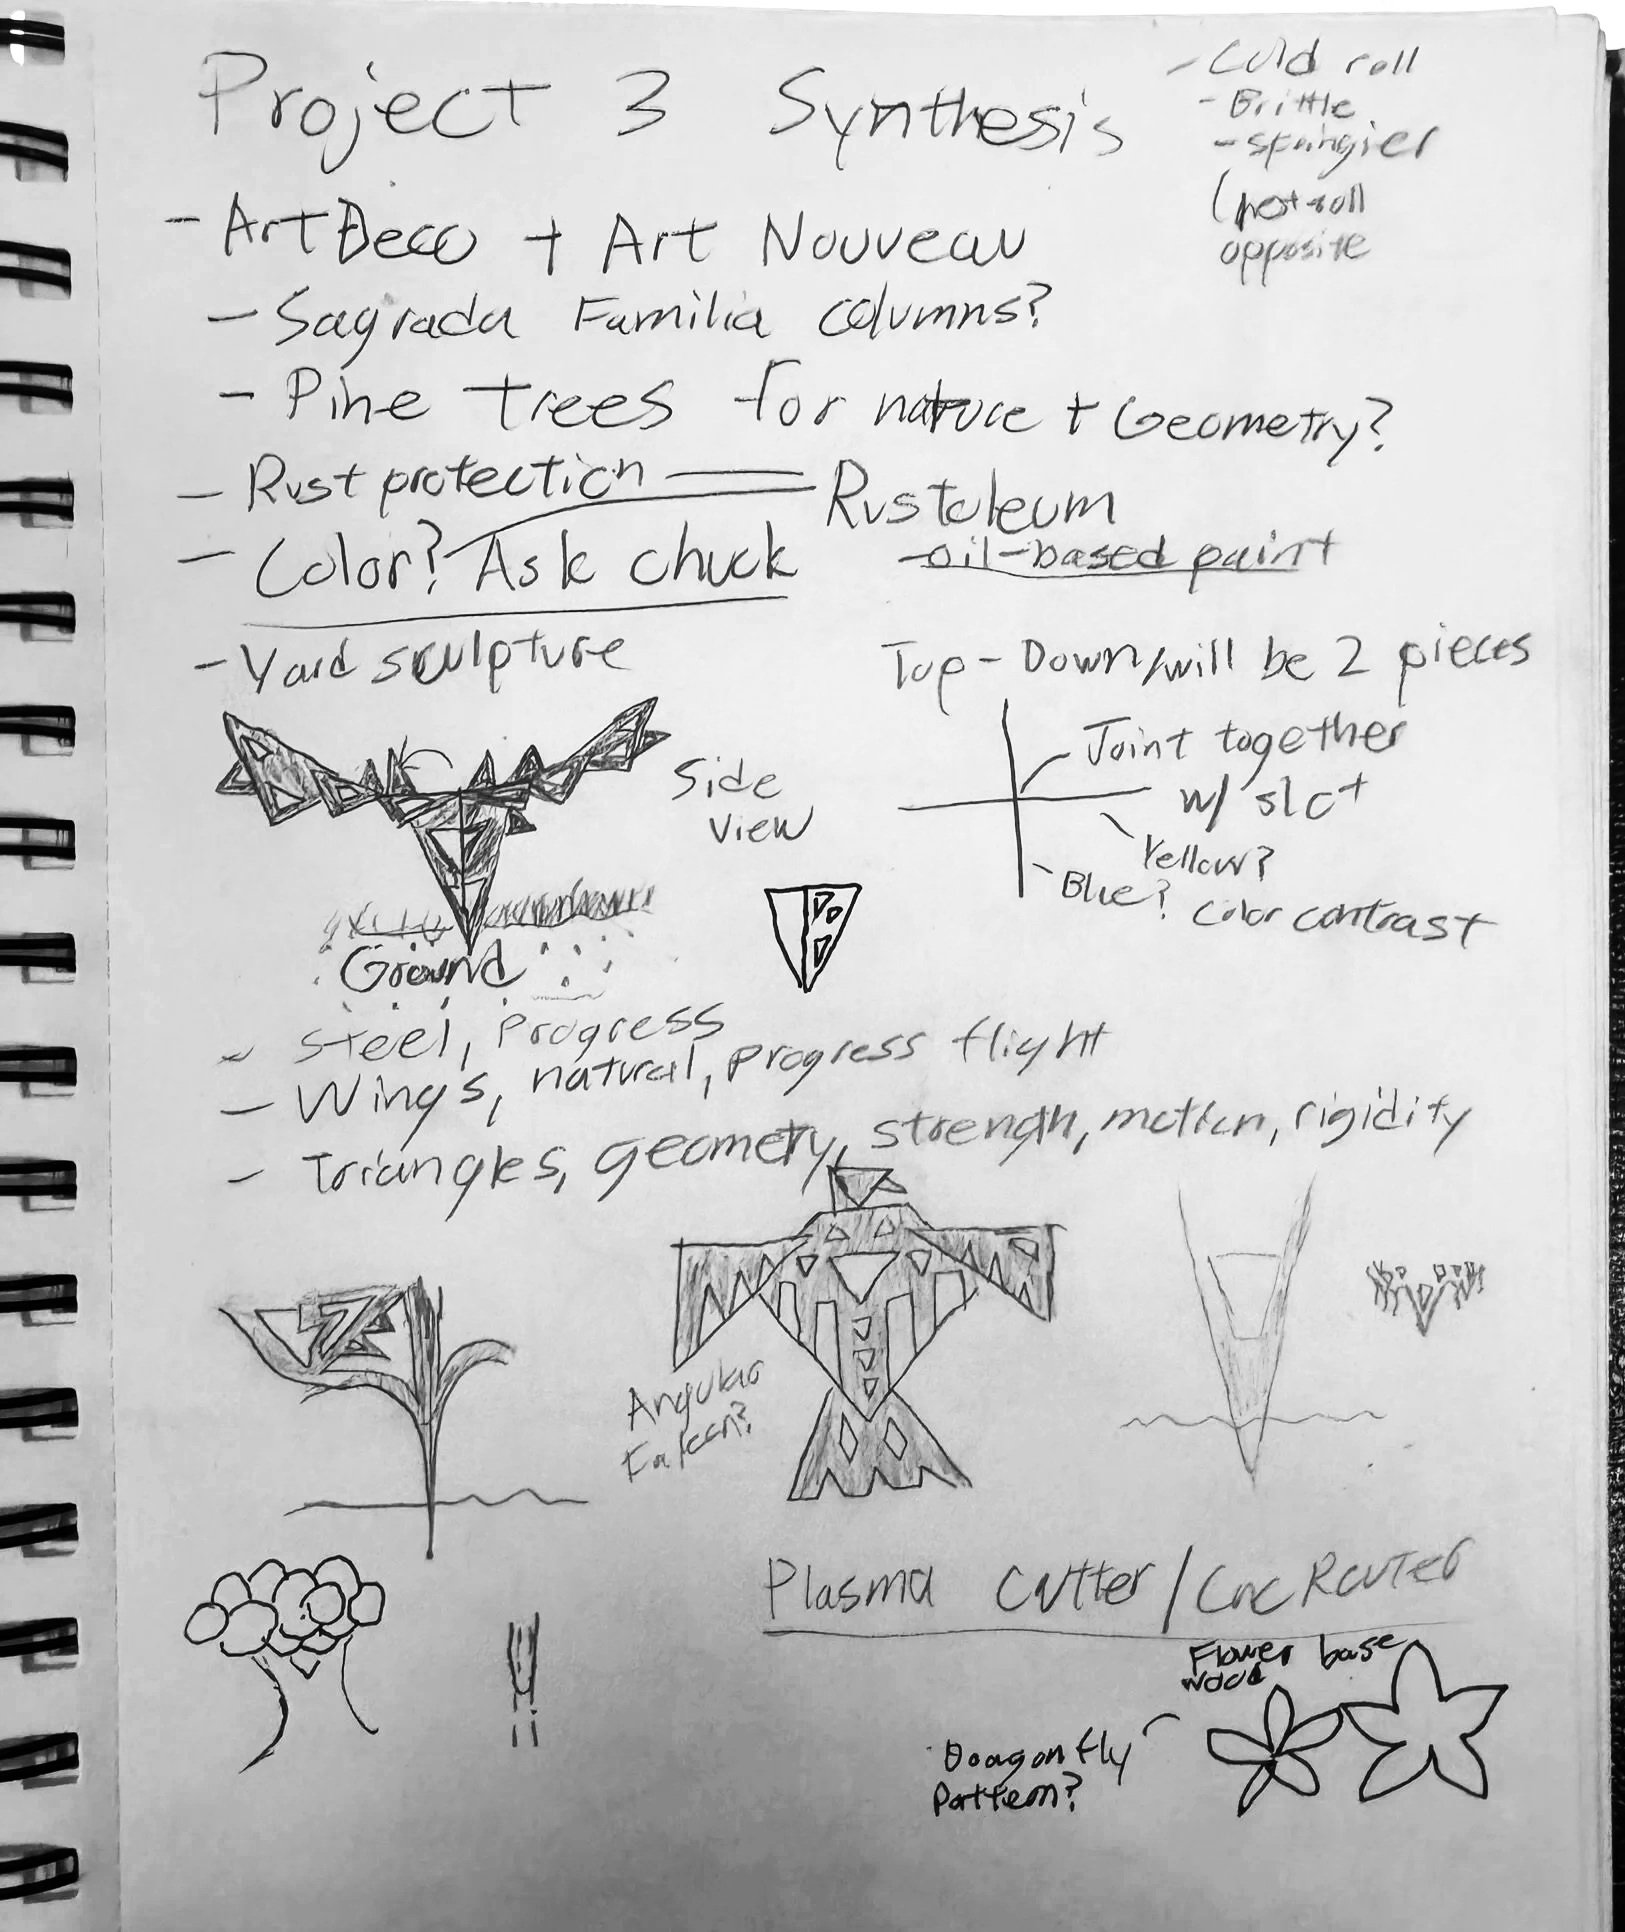 Project 3 Synthesis
- Cold roll
- Brittle
- springier
(hot roll
opposite
- Art Deco + Art Nouveau
- Sagrada Familia columns?
- Pine trees for nature + Geometry?
- Rust protection
Rustoleum
- oil-based paint
- Color? Ask chuck
- Yard sculpture
Side
View
Ground
Top-Down/will be 2 pieces
Joint together
w/ slot
Yellow?
Blue?
Color contrast
- Steel, Progress
- Wings, natural, progress flight
- Triangles, geometry, strength, motion, rigidity
Angular
Falcon?
Plasma Cutter / CNC Router
Flower base
wood
Dragonfly
Pattern?